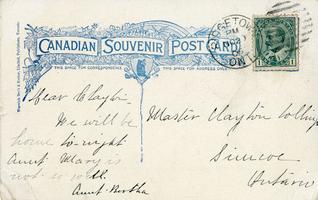 CANADIAN SOUVENIR POST CARD
THIS SPACE FOR CORRESPONDENCE
THIS SPACE FOR ADDRESS ONLY
Dear Clayton
We will be
home to-night
Aunt Mary is
not so well.
Aunt Bertha
Master Clayton
Simcoe
Ontario